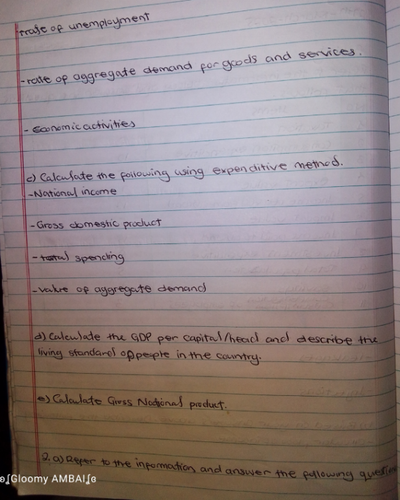 -rate of unemployment
-rate of aggregate demand for goods and services.
- Economic activities
c) Calculate the following using expenditive method.
-National income
-Gross domestic product
-total spending
-value of aggregate demand
d) Calculate the GDP per capital/head and describe the
living standard of people in the country.
e) Calculate Gross National product.
2. a) Refer to the information and answer the following
Gloomy AMBAI